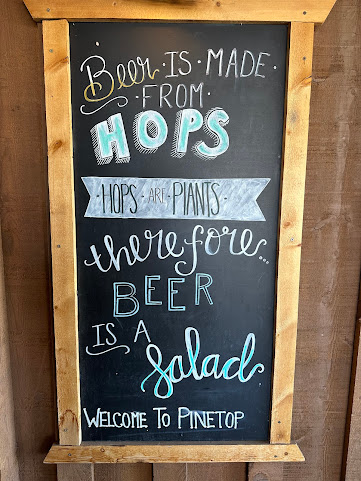 Beer · IS · MADE ·
· FROM ·
HOPS
· HOPS · ARE · PLANTS ·
therefore...
BEER
IS A
Salad
WELCOME TO PINETOP